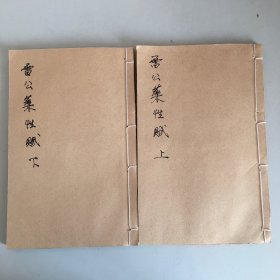 雷公藥性賦上
雷公藥性賦下